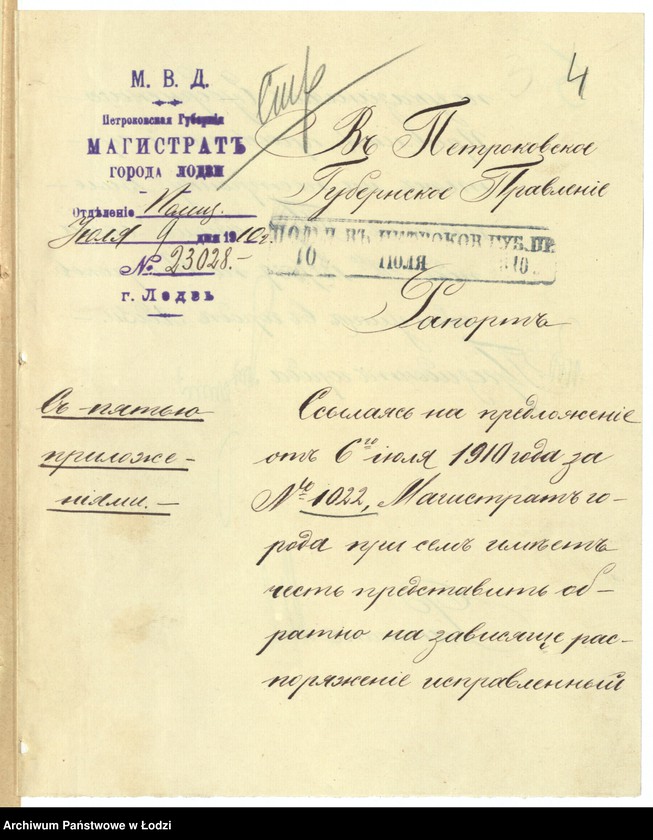 4
М. В. Д.
Петроковская Губернія
МАГИСТРАТЪ
ГОРОДА ЛОДЗИ
Отдѣленіе Полиц.
Іюля 9 дня 1910 г.
№ 23028.-
г. Лодзь
Въ Петроковское
Губернское Правленіе
ПОЛУЧ. ВЪ ПЕТРОКОВ. ГУБ. ПР.
10 ІЮЛЯ 1910
Рапортъ
Съ пятью
приложе-
ніями.-
Ссылаясь на предложеніе
отъ 6го іюля 1910 года за
№ 1022, Магистратъ го-
рода при семъ имѣетъ
честь представить об-
ратно на зависящее рас-
поряженіе исправленный
Archiwum Państwowe w Łodzi